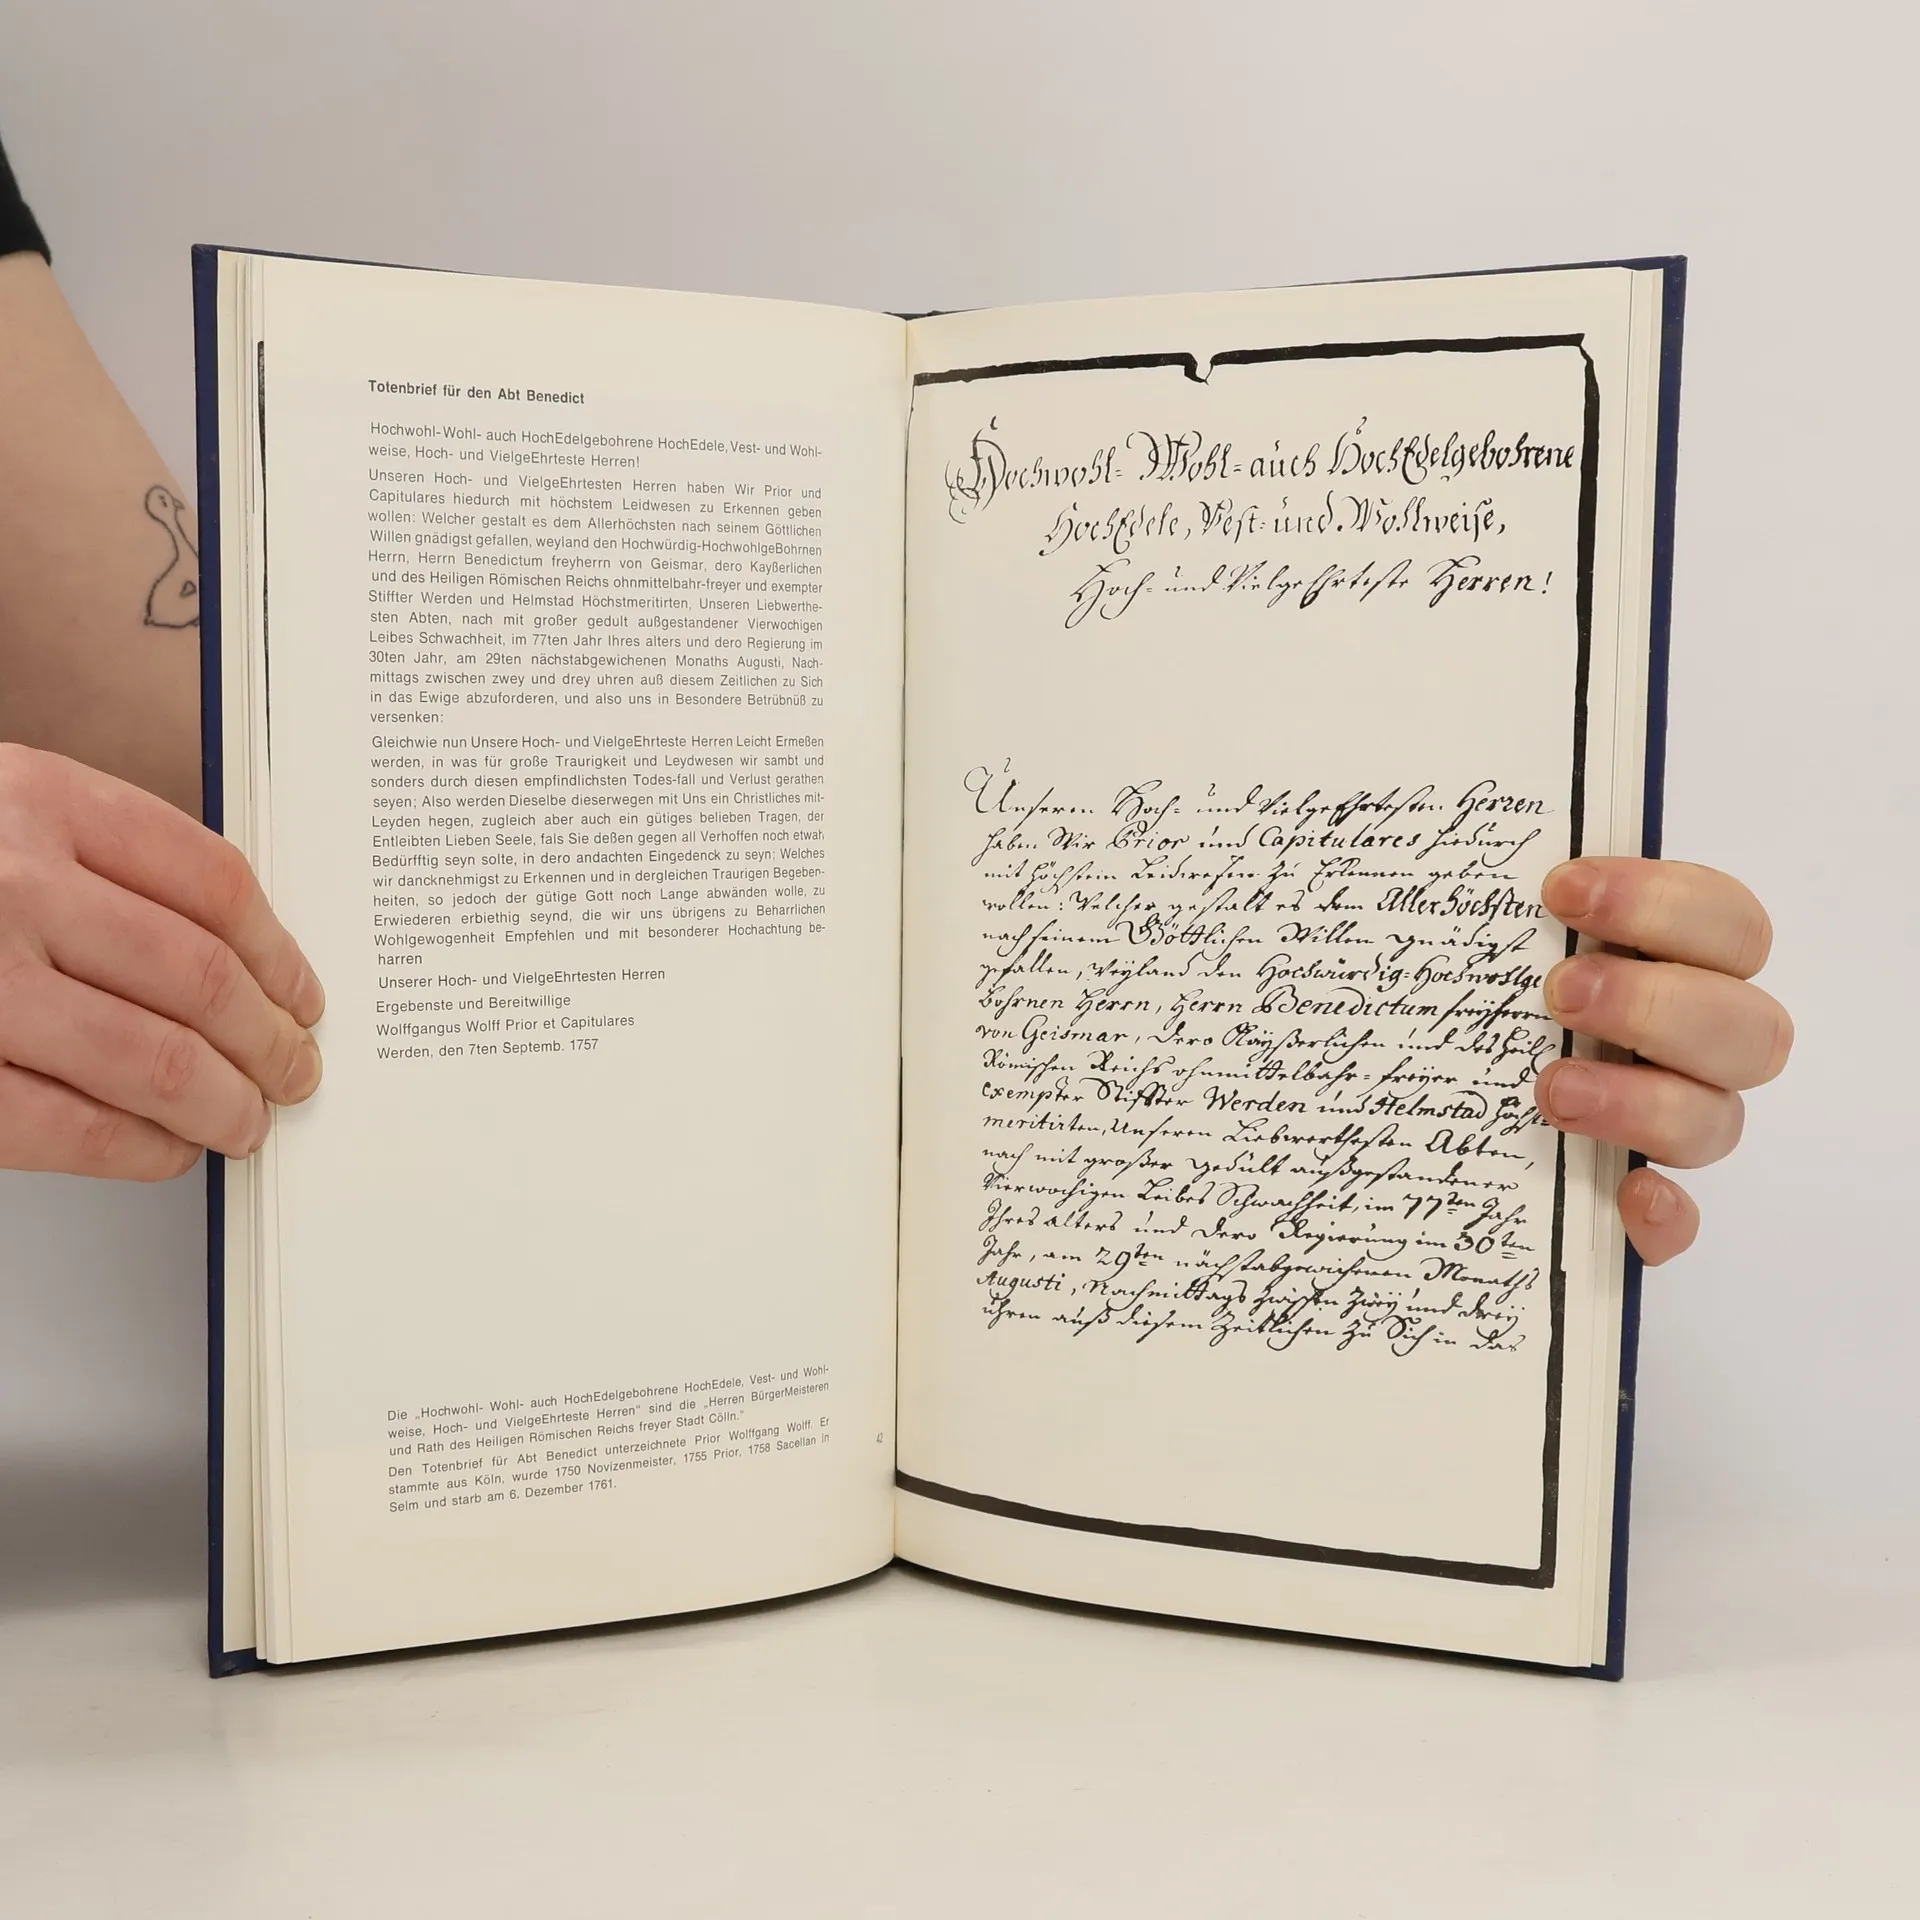 Totenbrief für den Abt Benedict
Hochwohl-Wohl- auch HochEdelgebohrene HochEdele, Vest- und Wohl-
weise, Hoch- und VielgeEhrteste Herren!
Unseren Hoch- und VielgeEhrtesten Herren haben Wir Prior und
Capitulares hiedurch mit höchstem Leidwesen zu Erkennen geben
wollen: Welcher gestalt es dem Allerhöchsten nach seinem Göttlichen
Willen gnädigst gefallen, weyland den Hochwürdig-HochwohlgeBohrnen
Herrn, Herrn Benedictum freyherrn von Geismar, dero Kayßerlichen
und des Heiligen Römischen Reichs ohnmittelbahr-freyer und exempter
Stiffter Werden und Helmstad Höchstmeritirten, Unseren Liebwerthe-
sten Abten, nach mit großer gedult außgestandener Vierwochigen
Leibes Schwachheit, im 77ten Jahr Ihres alters und dero Regierung im
30ten Jahr, am 29ten nächstabgewichenen Monaths Augusti, Nach-
mittags zwischen zwey und drey uhren auß diesem Zeitlichen zu Sich
in das Ewige abzuforderen, und also uns in Besondere Betrübnüß zu
versenken:
Gleichwie nun Unsere Hoch- und VielgeEhrteste Herren Leicht Ermeßen
werden, in was für große Traurigkeit und Leydwesen wir sambt und
sonders durch diesen empfindlichsten Todes-fall und Verlust gerathen
seyen; Also werden Dieselbe dieserwegen mit Uns ein Christliches mit-
Leyden hegen, zugleich aber auch ein gütiges belieben Tragen, der
Entleibten Lieben Seele, fals Sie deßen gegen all Verhoffen noch etwah
Bedürfftig seyn solte, in dero andachten Eingedenck zu seyn; Welches
wir dancknehmigst zu Erkennen und in dergleichen Traurigen Begeben-
heiten, so jedoch der gütige Gott noch Lange abwänden wolle, zu
Erwiederen erbiethig seynd, die wir uns übrigens zu Beharrlichen
Wohlgewogenheit Empfehlen und mit besonderer Hochachtung be-
harren
Unserer Hoch- und VielgeEhrtesten Herren
Ergebenste und Bereitwillige
Wolffgangus Wolff Prior et Capitulares
Werden, den 7ten Septemb. 1757
Die „Hochwohl- Wohl- auch HochEdelgebohrene HochEdele, Vest- und Wohl-
weise, Hoch- und VielgeEhrteste Herren“ sind die „Herren BürgerMeisteren
und Rath des Heiligen Römischen Reichs freyer Stadt Cölln.“
Den Totenbrief für Abt Benedict unterzeichnete Prior Wolffgang Wolff. Er
stammte aus Köln, wurde 1750 Novizenmeister, 1755 Prior, 1758 Sacellan in
Selm und starb am 6. Dezember 1761.
42
Hochwohl- Wohl- auch HochEdelgebohrene
HochEdele, Vest- und Wohlweise,
Hoch- und VielgeEhrteste Herren!
Unseren Hoch- und VielgeEhrtesten Herren
haben Wir Prior und Capitulares hiedurch
mit höchstem Leidwesen zu Erkennen geben
wollen: Welcher gestalt es dem Allerhöchsten
nach seinem Göttlichen Willen gnädigst
gefallen, weyland den Hochwürdig-Hochwohlge
Bohrnen Herrn, Herrn Benedictum freyherrn
von Geismar, dero Kayßerlichen und des Heill
Römischen Reichs ohnmittelbahr-freyer und
exempter Stiffter Werden und Helmstad Höchst-
meritirten, Unseren Liebwerthesten Abten,
nach mit großer gedult außgestandener
Vierwochigen Leibes Schwachheit, im 77ten Jahr
Ihres alters und dero Regierung im 30ten
Jahr, am 29ten nächstabgewichenen Monaths
Augusti, Nachmittags zwischen zwey und drey
uhren auß diesem Zeitlichen zu Sich in das